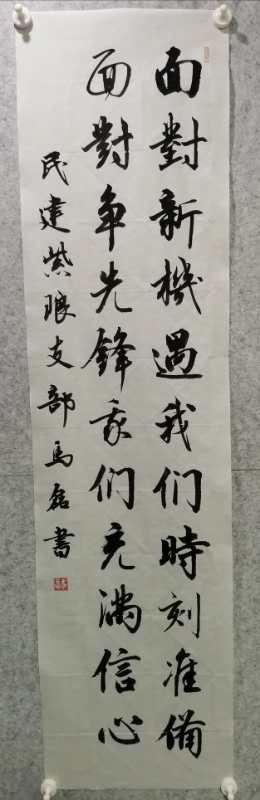 面對新機遇我们時刻准備
面對争先鋒我们充满信心
民建紫琅支部馬磊書